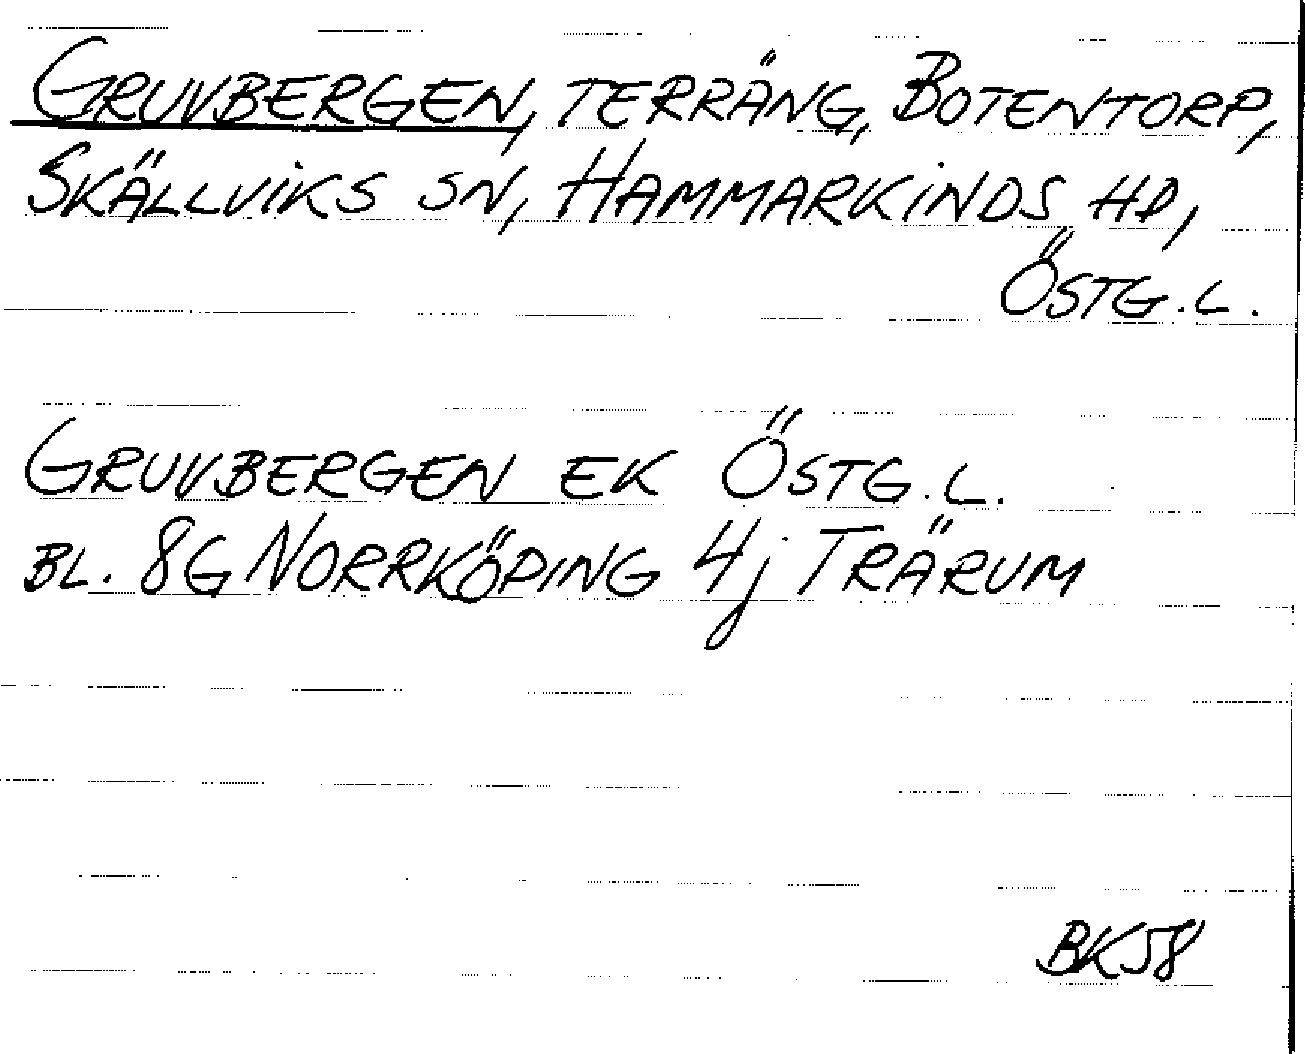 GRUVBERGEN, TERRÄNG, BOTENTORP,
SKÄLLVIKS SN, HAMMARKINDS HD,
ÖSTG.L.
GRUVBERGEN EK ÖSTG.L.
BL. 8G NORRKÖPING 4j TRÄRUM
BK58